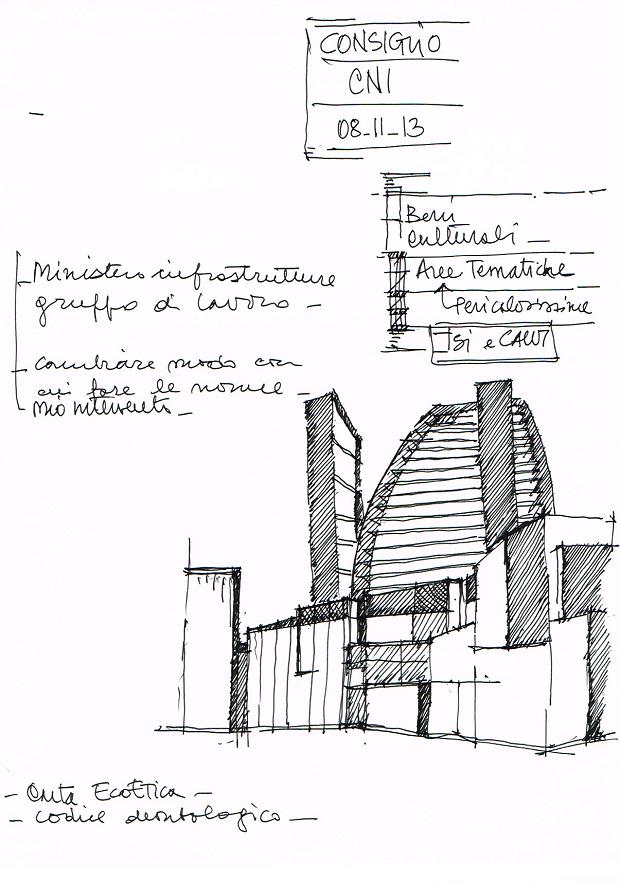 CONSIGLIO
CNI
08-11-13
Beni
culturali –
Aree Tematiche
Pericolosissime
Si e CALVI
Ministero infrastrutture
gruppo di lavoro –
cambiare modo con
cui fare le norme –
mio intervento –
– Carta EcoEtica –
– codice deontologico –